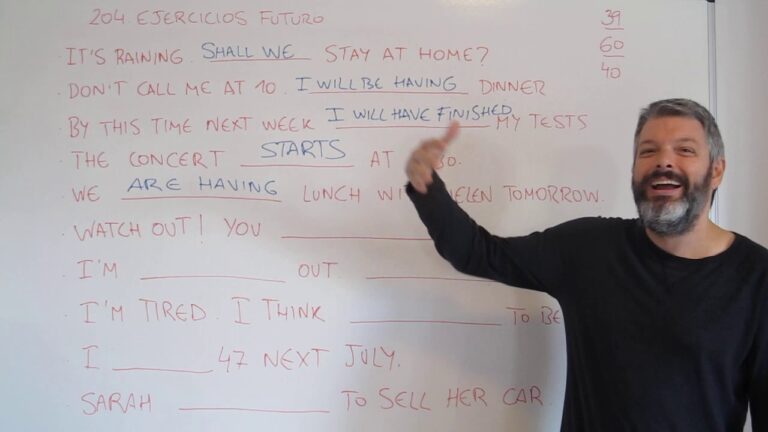 204 EJERCICIOS FUTURO
39
60
40
IT'S RAINING. SHALL WE STAY AT HOME?
DON'T CALL ME AT 10. I WILL BE HAVING DINNER
BY THIS TIME NEXT WEEK I WILL HAVE FINISHED MY TESTS
THE CONCERT STARTS AT
WE ARE HAVING LUNCH WITH HELEN TOMORROW.
WATCH OUT! YOU
I'M OUT.
I'M TIRED. I THINK TO BE
I 47 NEXT JULY.
SARAH TO SELL HER CAR